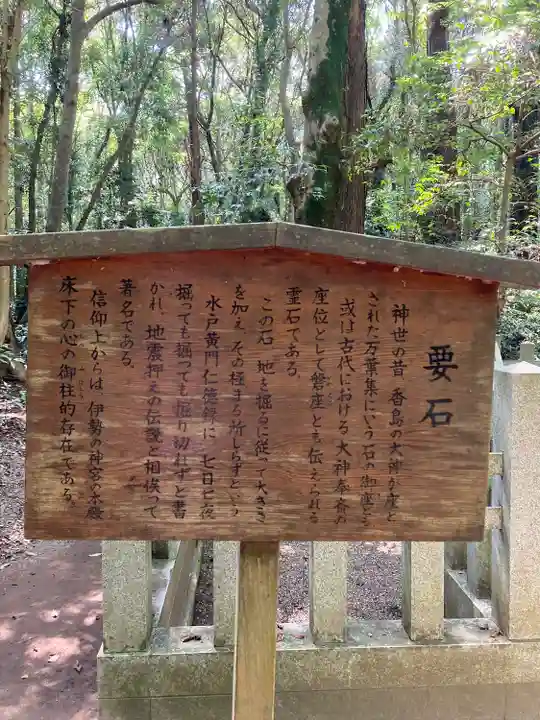 要石
神世の昔 香島の大神が座と
された万葉集にいう石の御座とも
或は古代における大神奉斎の
座位として磐座とも伝えられる
霊石である。
この石 地を掘るに従って大きさ
を加え その極まる所しらずという
水戸黄門仁徳録に 七日七夜
掘っても掘っても掘り切れずと書
かれ、地震押えの伝説と相俟って
著名である。
信仰上からは、伊勢の神宮の本殿
床下の心の御柱的存在である。